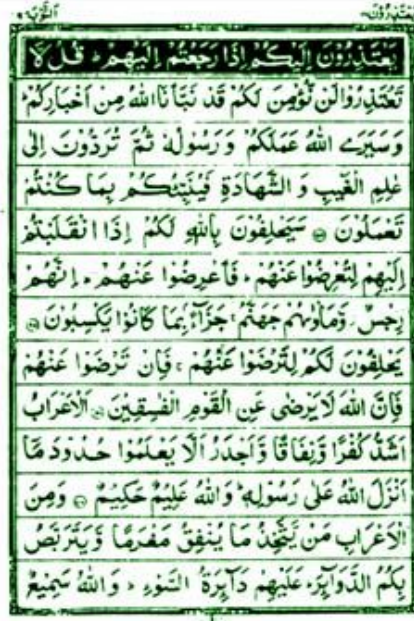 يعتذرون١١ التوبة٩
يَعْتَذِرُوْنَ اِلَيْكُمْ اِذَا رَجَعْتُمْ اِلَيْهِمْ ؕ قُلْ لَّا
تَعْتَذِرُوْا لَنْ نُّؤْمِنَ لَكُمْ قَدْ نَبَّاَنَا اللّٰهُ مِنْ اَخْبَارِكُمْ ؕ
وَ سَيَرَى اللّٰهُ عَمَلَكُمْ وَ رَسُوْلُهٗ ثُمَّ تُرَدُّوْنَ اِلٰى
عٰلِمِ الْغَيْبِ وَ الشَّهَادَةِ فَيُنَبِّئُكُمْ بِمَا كُنْتُمْ
تَعْمَلُوْنَ سَيَحْلِفُوْنَ بِاللّٰهِ لَكُمْ اِذَا انْقَلَبْتُمْ
اِلَيْهِمْ لِتُعْرِضُوْا عَنْهُمْ ؕ فَاَعْرِضُوْا عَنْهُمْ ؕ اِنَّهُمْ
رِجْسٌ ز وَّ مَاْوٰىهُمْ جَهَنَّمُ ۚ جَزَآءًۢ بِمَا كَانُوْا يَكْسِبُوْنَ
يَحْلِفُوْنَ لَكُمْ لِتَرْضَوْا عَنْهُمْ ۚ فَاِنْ تَرْضَوْا عَنْهُمْ
فَاِنَّ اللّٰهَ لَا يَرْضٰى عَنِ الْقَوْمِ الْفٰسِقِيْنَ اَلْاَعْرَابُ
اَشَدُّ كُفْرًا وَّ نِفَاقًا وَّ اَجْدَرُ اَلَّا يَعْلَمُوْا حُدُوْدَ مَآ
اَنْزَلَ اللّٰهُ عَلٰى رَسُوْلِهٖ ؕ وَ اللّٰهُ عَلِيْمٌ حَكِيْمٌ وَ مِنَ
الْاَعْرَابِ مَنْ يَّتَّخِذُ مَا يُنْفِقُ مَغْرَمًا وَّ يَتَرَبَّصُ
بِكُمُ الدَّوَآئِرَ ؕ عَلَيْهِمْ دَآئِرَةُ السَّوْءِ ؕ وَ اللّٰهُ سَمِيْعٌ